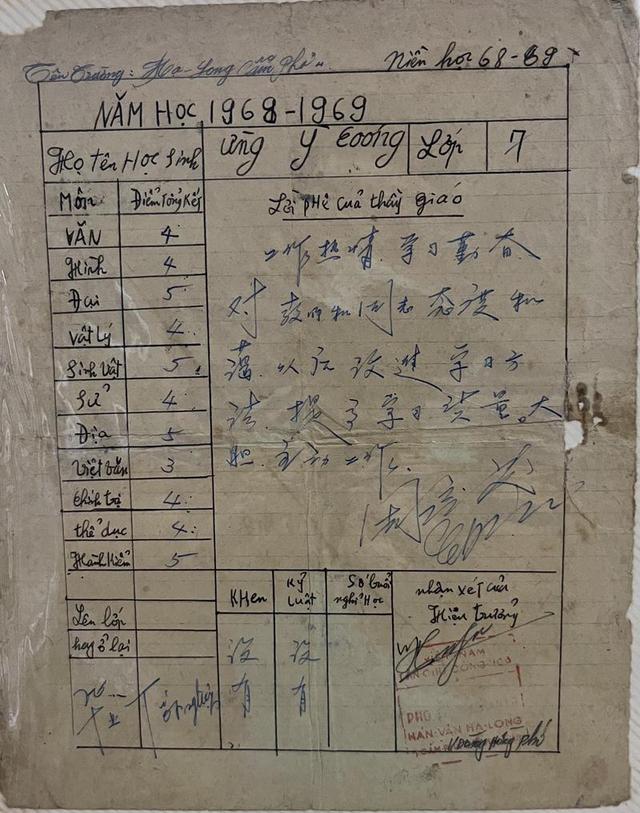 Tên Trường: Hạ-Long Cẩm Phả
Niên học 68-69
NĂM HỌC 1968-1969
Họ tên Học Sinh
Ưng Y Coóng
Lớp
7
Môn
Điểm Tổng Kết
Lời phê của thầy giáo
VĂN 4
Hình 4
Đại 5
Vật Lý 4
Sinh Vật 5
Sử 4
Địa 5
Viết văn 3
Chính trị 4
Thể dục 4
Hành Kiểm 5
工作热情.学习勤奋.
对教师和同志态度和
蔼.以后改进学习方
法.提高学习质量.大
胆.主动工作.
Lên lớp
hay ở lại
KHEN
Kỷ luật
Số buổi nghỉ Học
nhận xét của
Hiệu trưởng
没有
没有
业
VIỆT NAM
PHỔ
HÁN-VĂN HẠ-LONG
Hồng Phó